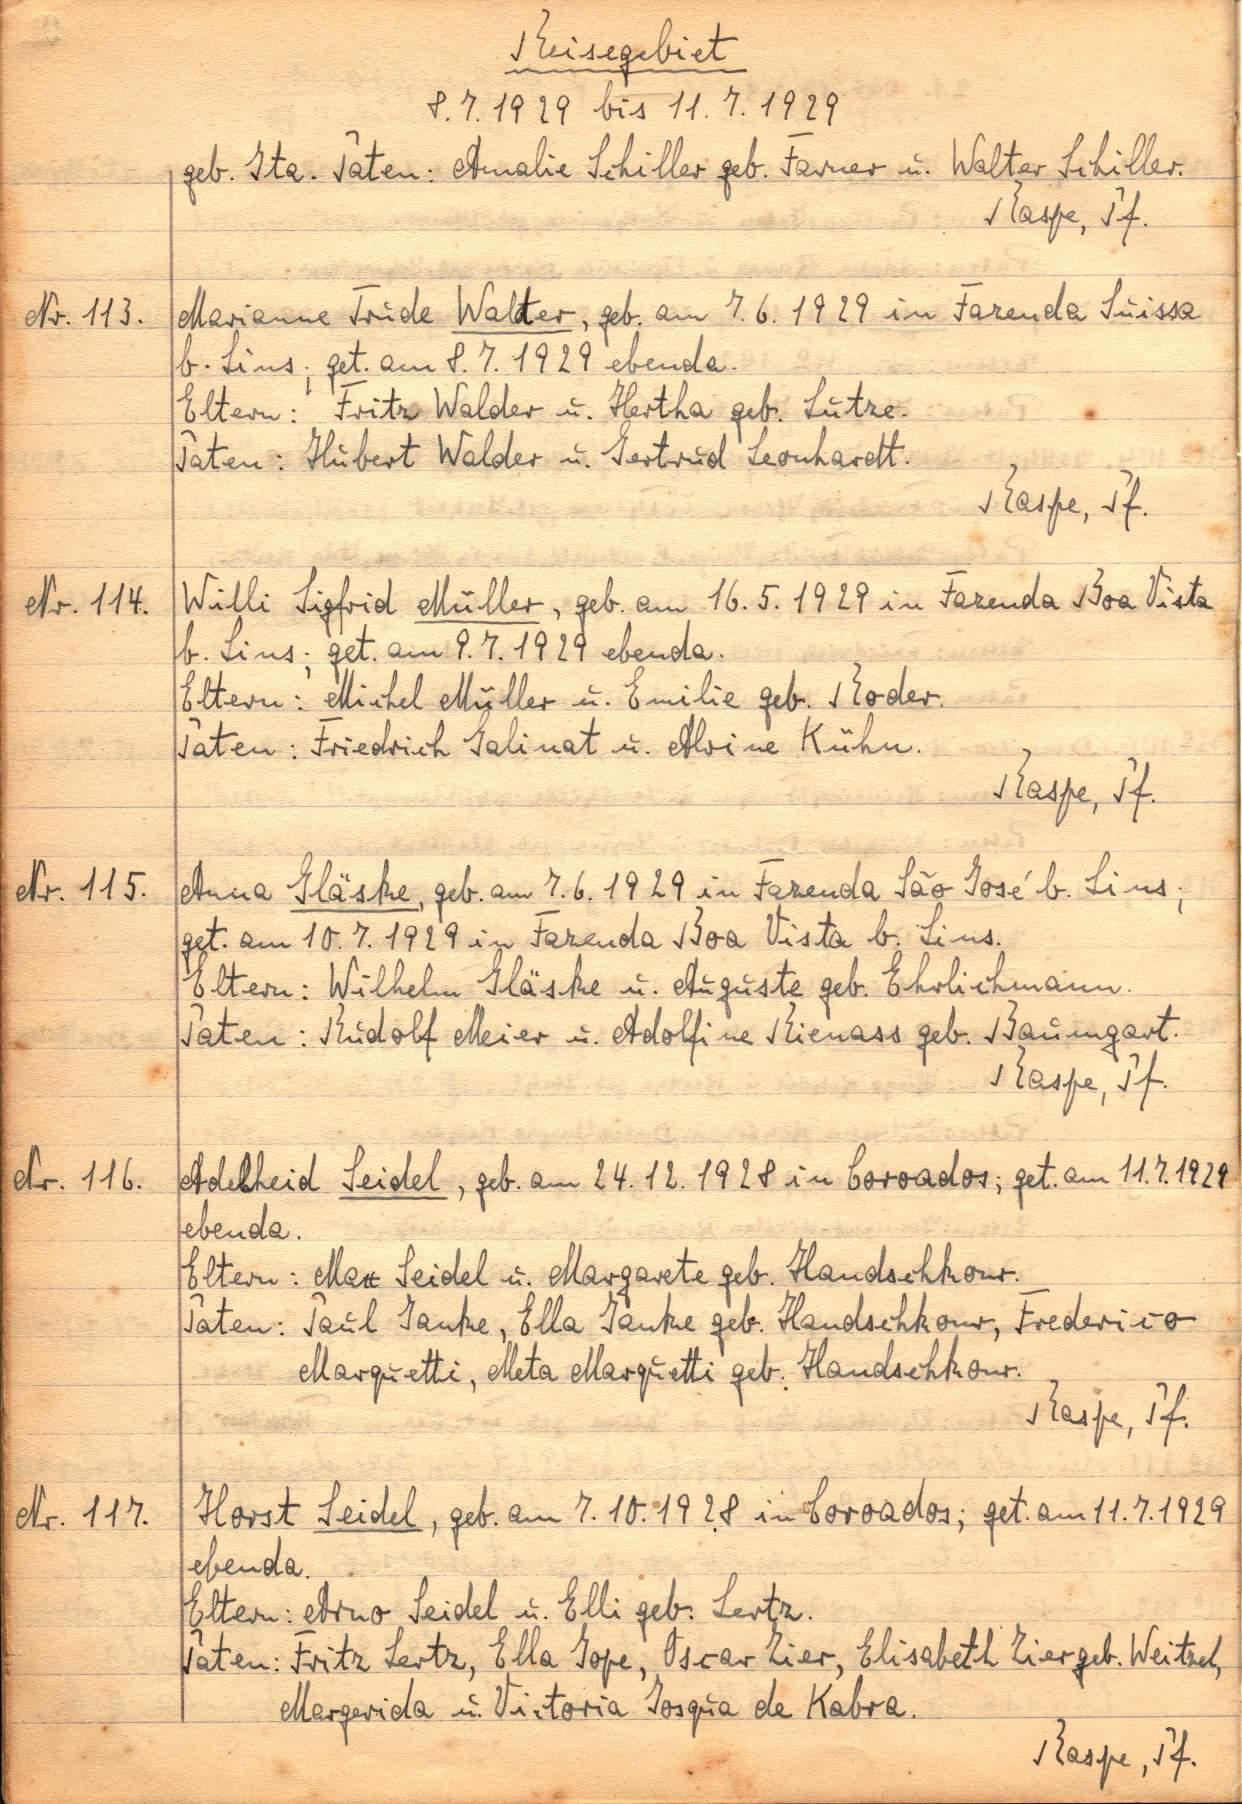 Reisegebiet
8.7.1929 bis 11.7.1929
geb. Ita. Paten: Amalie Schiller geb. Farner u. Walter Schiller.
Raspe, Pf.
Nr. 113. Marianne Trude Walder, geb. am 7.6.1929 in Fazenda Suissa
b. Lins; get. am 8.7.1929 ebenda.
Eltern: Fritz Walder u. Hertha geb. Lutze.
Paten: Hubert Walder u. Gertrud Leonhardt.
Raspe, Pf.
Nr. 114. Willi Sigfrid Müller, geb. am 16.5.1929 in Fazenda Boa Vista
b. Lins; get. am 9.7.1929 ebenda.
Eltern: Michel Müller u. Emilie geb. Roder.
Paten: Friedrich Galinat u. Alvine Kühn.
Raspe, Pf.
Nr. 115. Anna Gläske, geb. am 7.6.1929 in Fazenda São José b. Lins;
get. am 10.7.1929 in Fazenda Boa Vista b. Lins.
Eltern: Wilhelm Gläske u. Auguste geb. Ehrlichmann.
Paten: Rudolf Meier u. Adolfine Rienass geb. Baumgart.
Raspe, Pf.
Nr. 116. Adelheid Seidel, geb. am 24.12.1928 in Coroados; get. am 11.7.1929
ebenda.
Eltern: Max Seidel u. Margarete geb. Handschkour.
Paten: Paul Janke, Ella Janke geb. Handschkour, Frederico
Marquetti, Meta Marquetti geb. Handschkour.
Raspe, Pf.
Nr. 117. Horst Seidel, geb. am 7.10.1928 in Coroados; get. am 11.7.1929
ebenda.
Eltern: Arno Seidel u. Elli geb. Lertz.
Paten: Fritz Lertz, Ella Gope, Oscar Zier, Elisabeth Zier geb. Weitzel,
Margerida u. Victoria Josqua de Kabra.
Raspe, Pf.